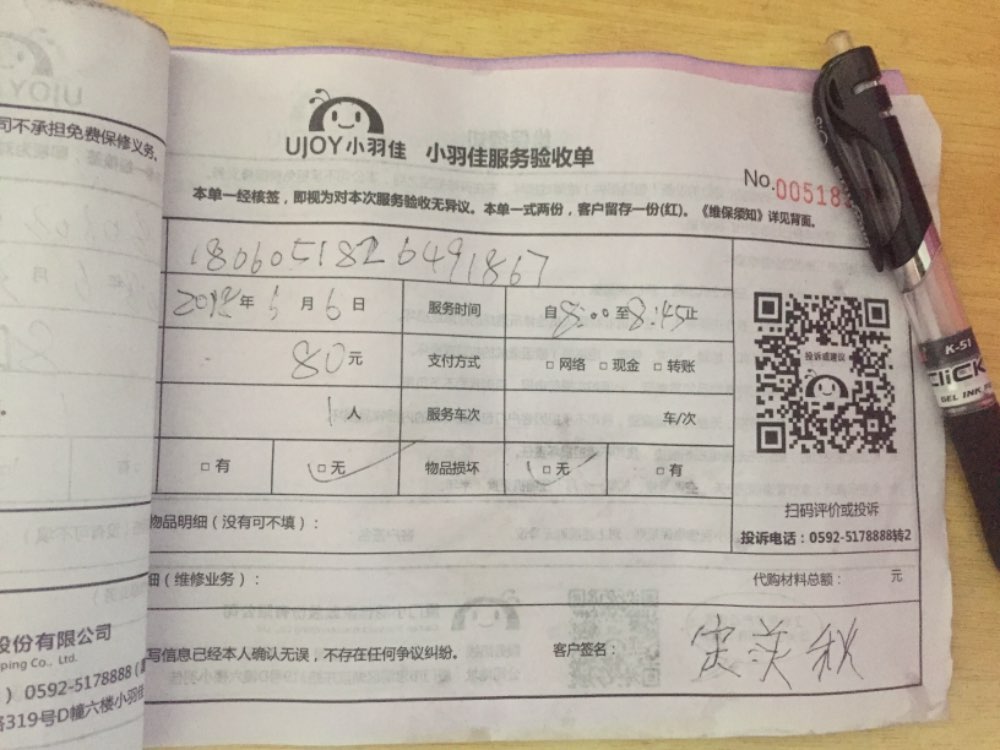 司不承担免费保修义务。
UJOY小羽佳 小羽佳服务验收单
No.005182
本单一经核签，即视为对本次服务验收无异议。本单一式两份，客户留存一份(红)。《维保须知》详见背面。
18060518206491867
2018年 月6日 服务时间 自8:00至8:45止
80元 支付方式 □网络 □现金 □转账
1人 服务车次 车/次
□有 □无 物品损坏 □无 □有
投诉或建议
扫码评价或投诉
投诉电话：0592-5178888转2
物品明细（没有可不填）：
细（维修业务）： 代购材料总额： 元
写信息已经本人确认无误，不存在任何争议纠纷。 客户签名：
股份有限公司
ping Co., Ltd.
）0592-5178888
路319号D幢六楼小羽佳
K-51
CLiCK
GEL INK